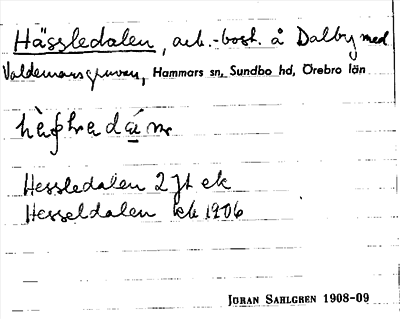 Hässledalen, arb.-bost. å Dalby med
Valdemarsgruvan, Hammars sn, Sundbo hd, Örebro län
Hessledalen 2 jt ek
Hesseldalen kk 1906
JÖRAN SAHLGREN 1908-09